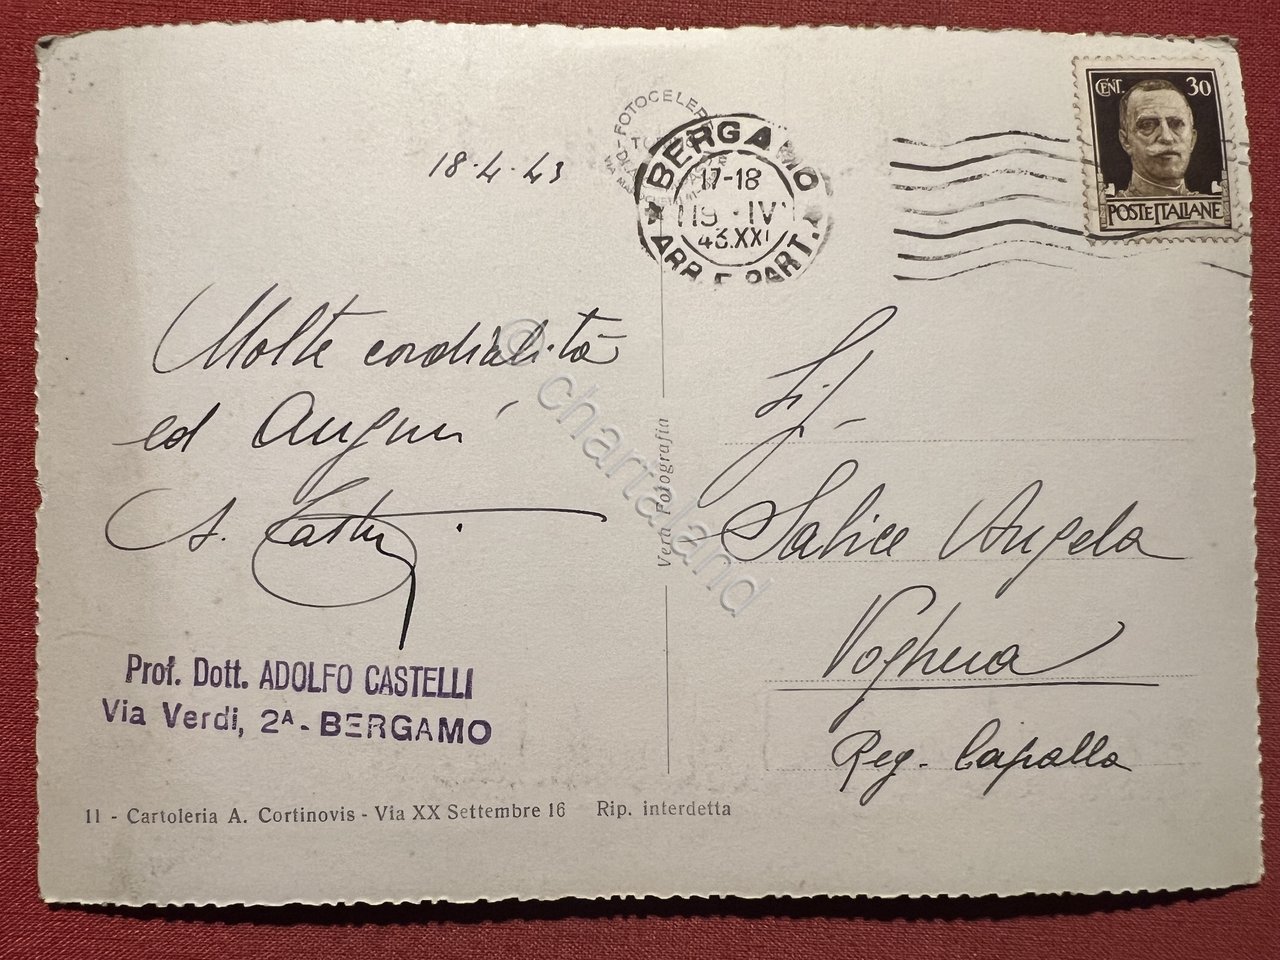 18·4·43
FOTOCELERE
BERGAMO
17-18
19·IV
43.XXI
ARR. E PART.
CENT. 30
POSTE ITALIANE
Molte cordialità
ed Auguri
A. Castelli
Prof. Dott. ADOLFO CASTELLI
Via Verdi, 2A - BERGAMO
11 - Cartoleria A. Cortinovis - Via XX Settembre 16 Rip. interdetta
Vera Fotografia
© chartaland
Sig.
Salice Angela
Voghera
Reg. Capalla